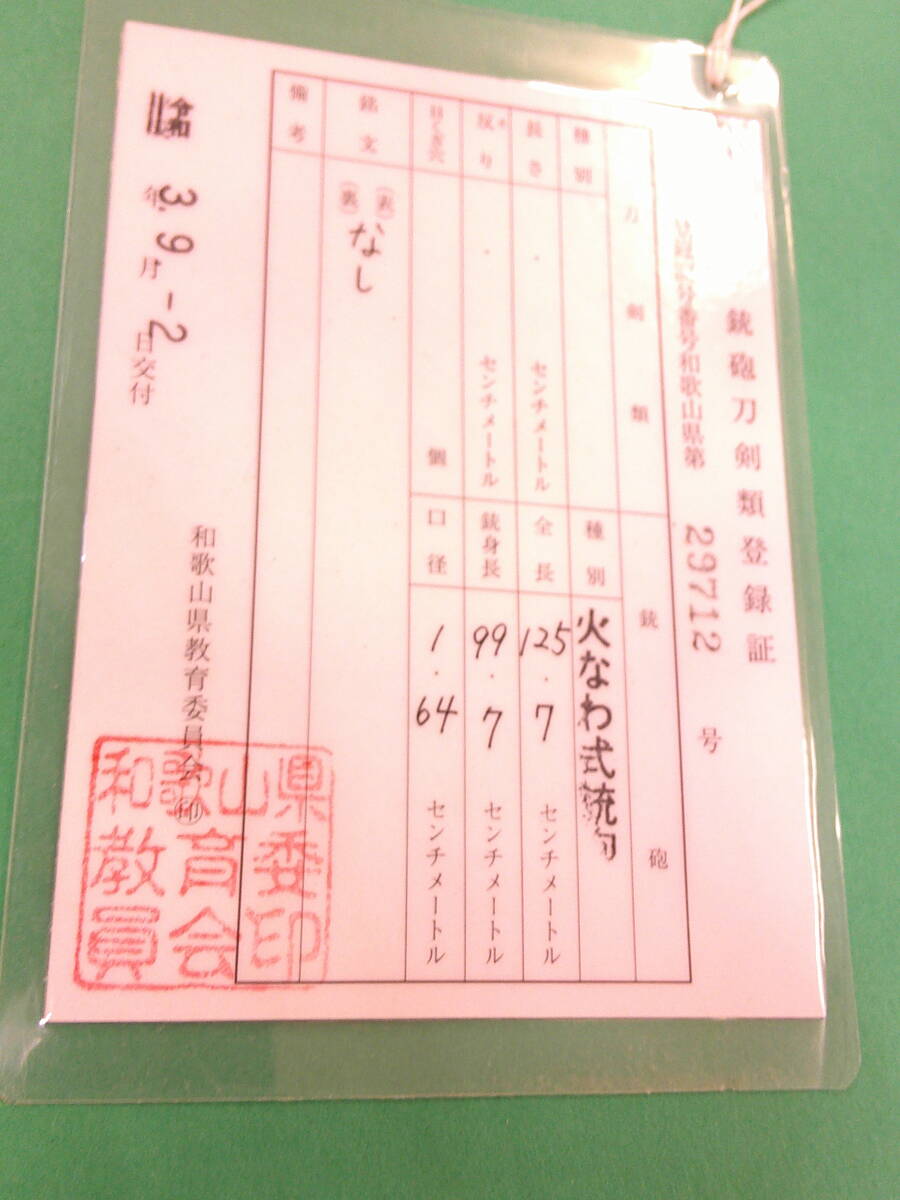 銃砲刀剣類登録証
登録記号番号和歌山県第 29712 号
刀剣類
銃砲
種別
種別
火なわ式銃砲
長さ
・
センチメートル
全長
125・7
センチメートル
反り
・
センチメートル
銃身長
99・7
センチメートル
目くぎ穴
個
口径
1・64
センチメートル
銘文
(表)
(裏)
なし
備考
令和
3.9.-2
年月日交付
和歌山県教育委員会㊞
和歌山県
教育委
員会印